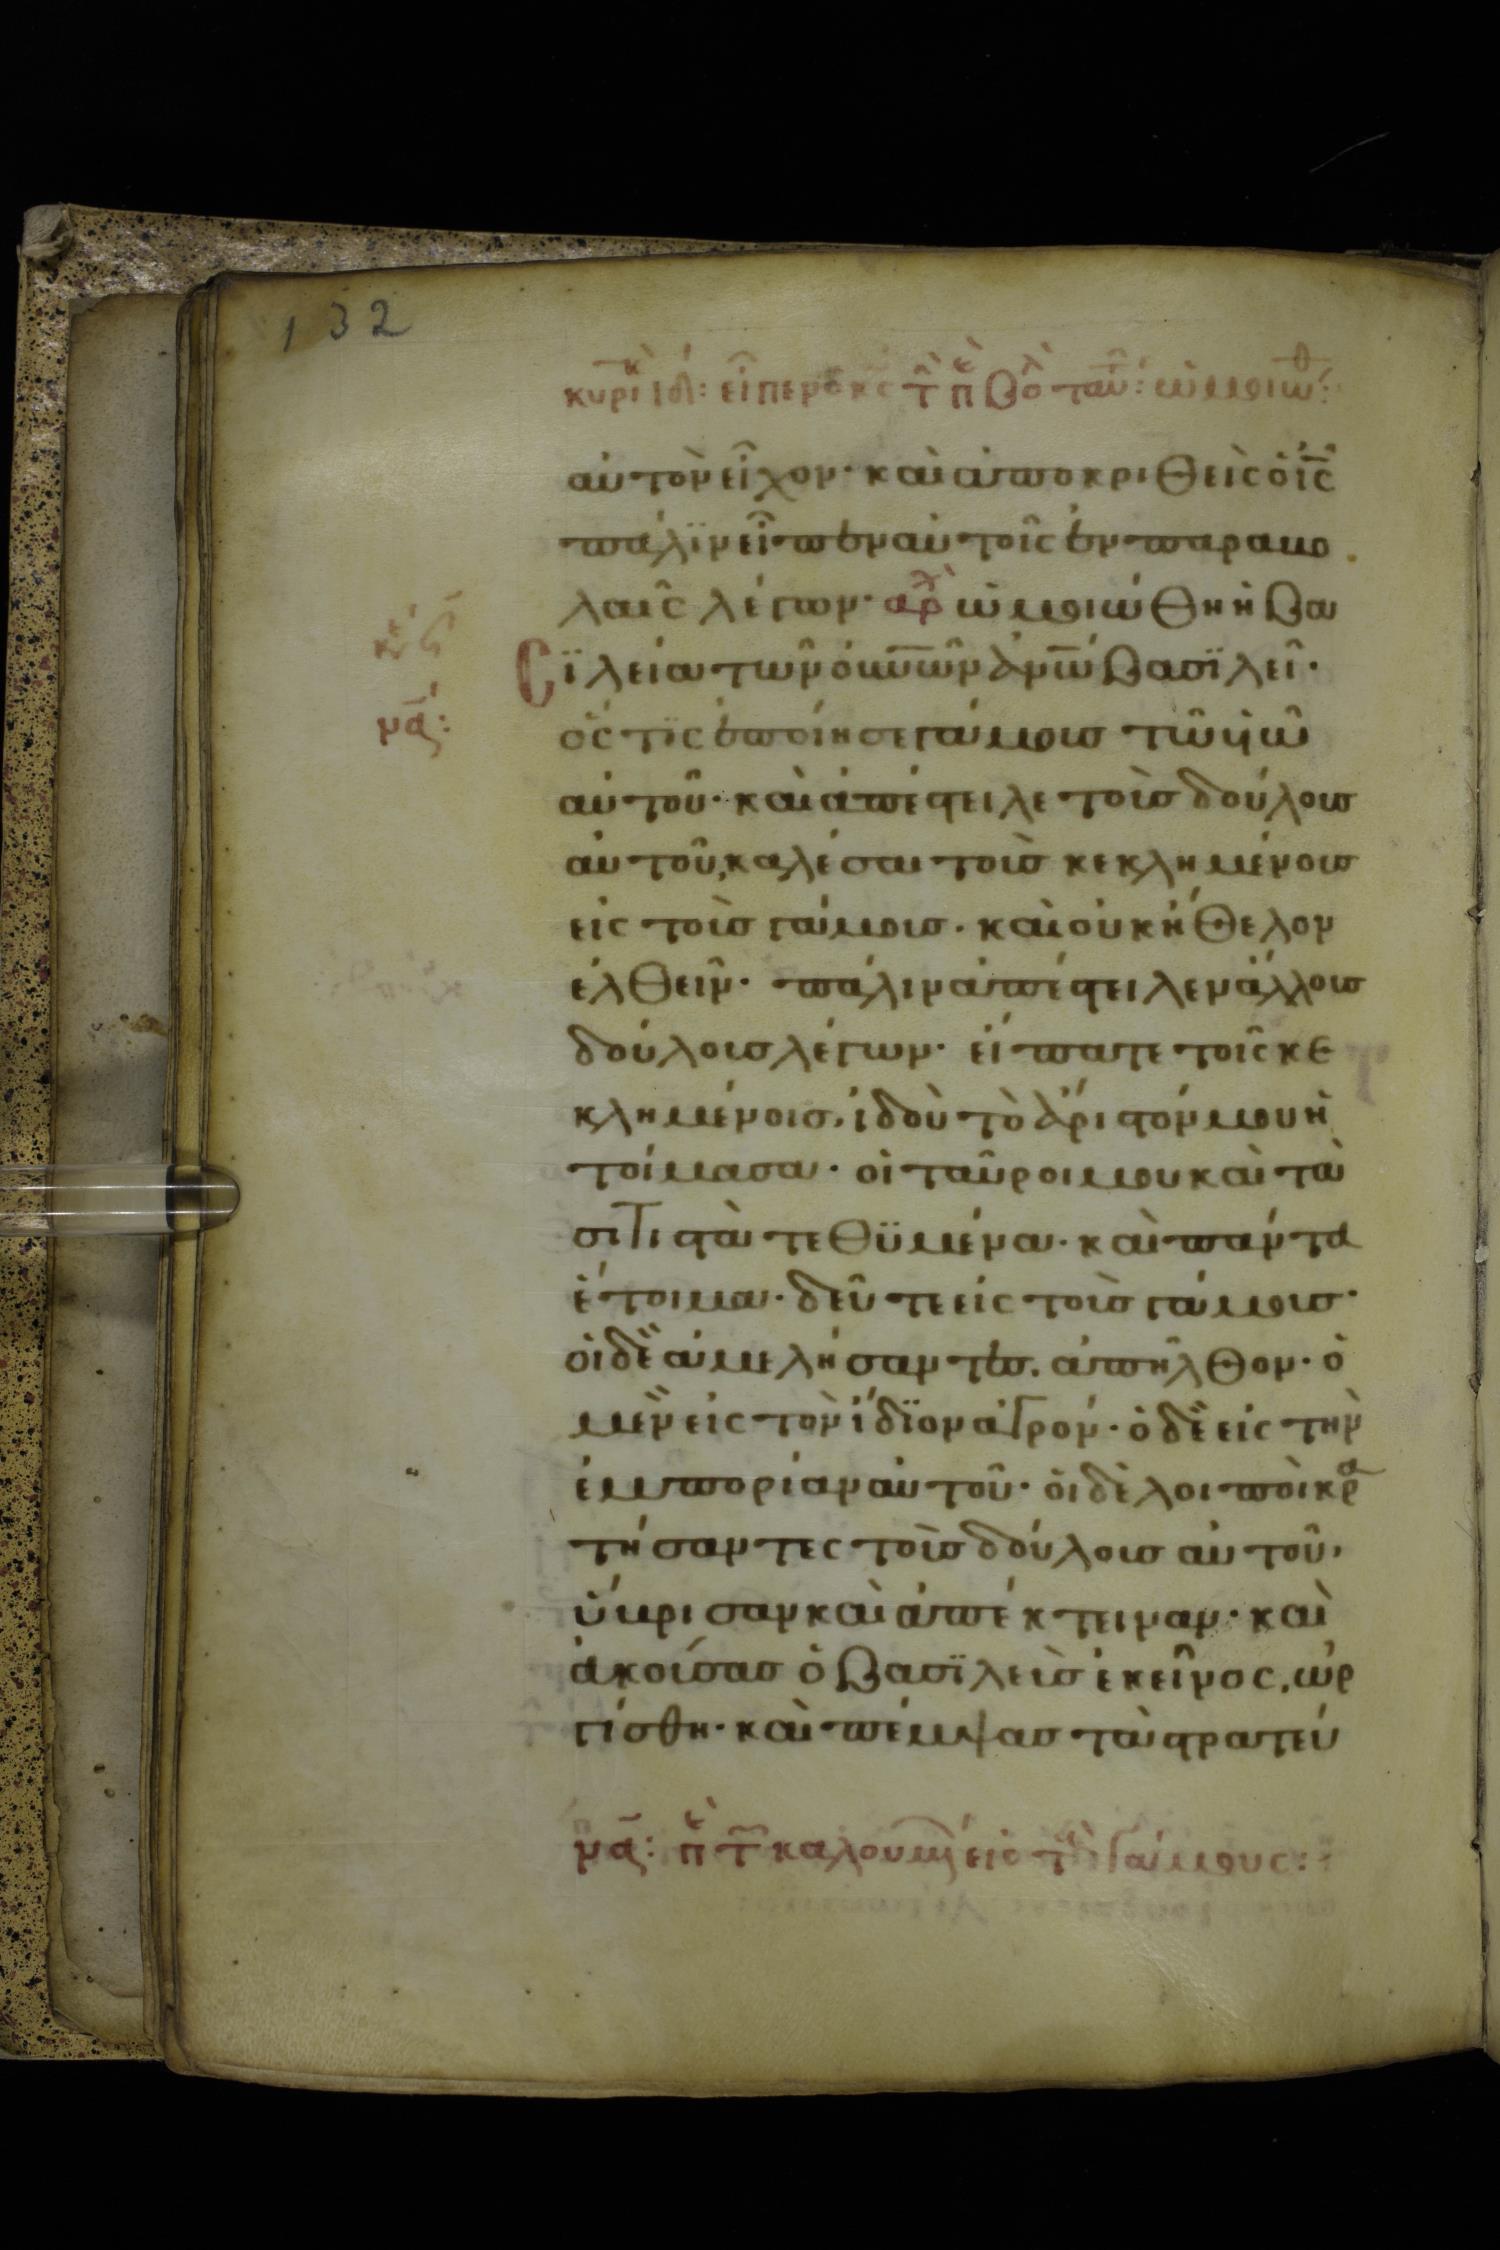 132
αὐτὸν εἶχον· καὶ ἀποκριθεὶς ὁ ις
πάλϊν εἶπεν αὐτοῖς ἐν παραβο
λαῖς λέγων· ἀρχ ὡμοιώθη ἡ βα
σϊλεία τῶν οὐνῶν ἀνῶ βασϊλεῖ·
ὅς τϊς ἐποίησε γάμους τῶ υἱῶ
αὐτοῦ· καὶ ἀπέστειλε τοὺς δούλους
αὐτοῦ, καλέσαι τοὺς κεκλημένους
εἰς τοὺς γάμους· καὶ οὐκ ἤθελον
ἐλθεῖν· πάλιν ἀπέστειλεν ἄλλους
δούλους λέγων· εἴπατε τοῖς κε
κλημένοις, ἰδοὺ τὸ ἄριστόν μου ἡ
τοίμασα· οἱ ταῦροι μου καὶ τὰ
σιτιστὰ τεθϋμένα· καὶ πάντα
ἕτοιμα· δεῦτε εἰς τοὺς γάμους·
οἱ δὲ ἀμελήσαντες, ἀπῆλθον· ὁ
μὲν εἰς τὸν ἴδϊον ἀγρόν· ὁ δὲ εἰς τὴν
ἐμπορίαν αὐτοῦ· οἱ δὲ λοιποὶ κρα
τήσαντες τοὺς δούλους αὐτοῦ,
ὕβρισαν καὶ ἀπέκτειναν· καὶ
ἀκούσας ὁ βασϊλεὺς ἐκεῖνος, ὠρ
γίσθη· καὶ πέμψας τὰ στρατεύ
καλουμ εἰς τ γάμους: